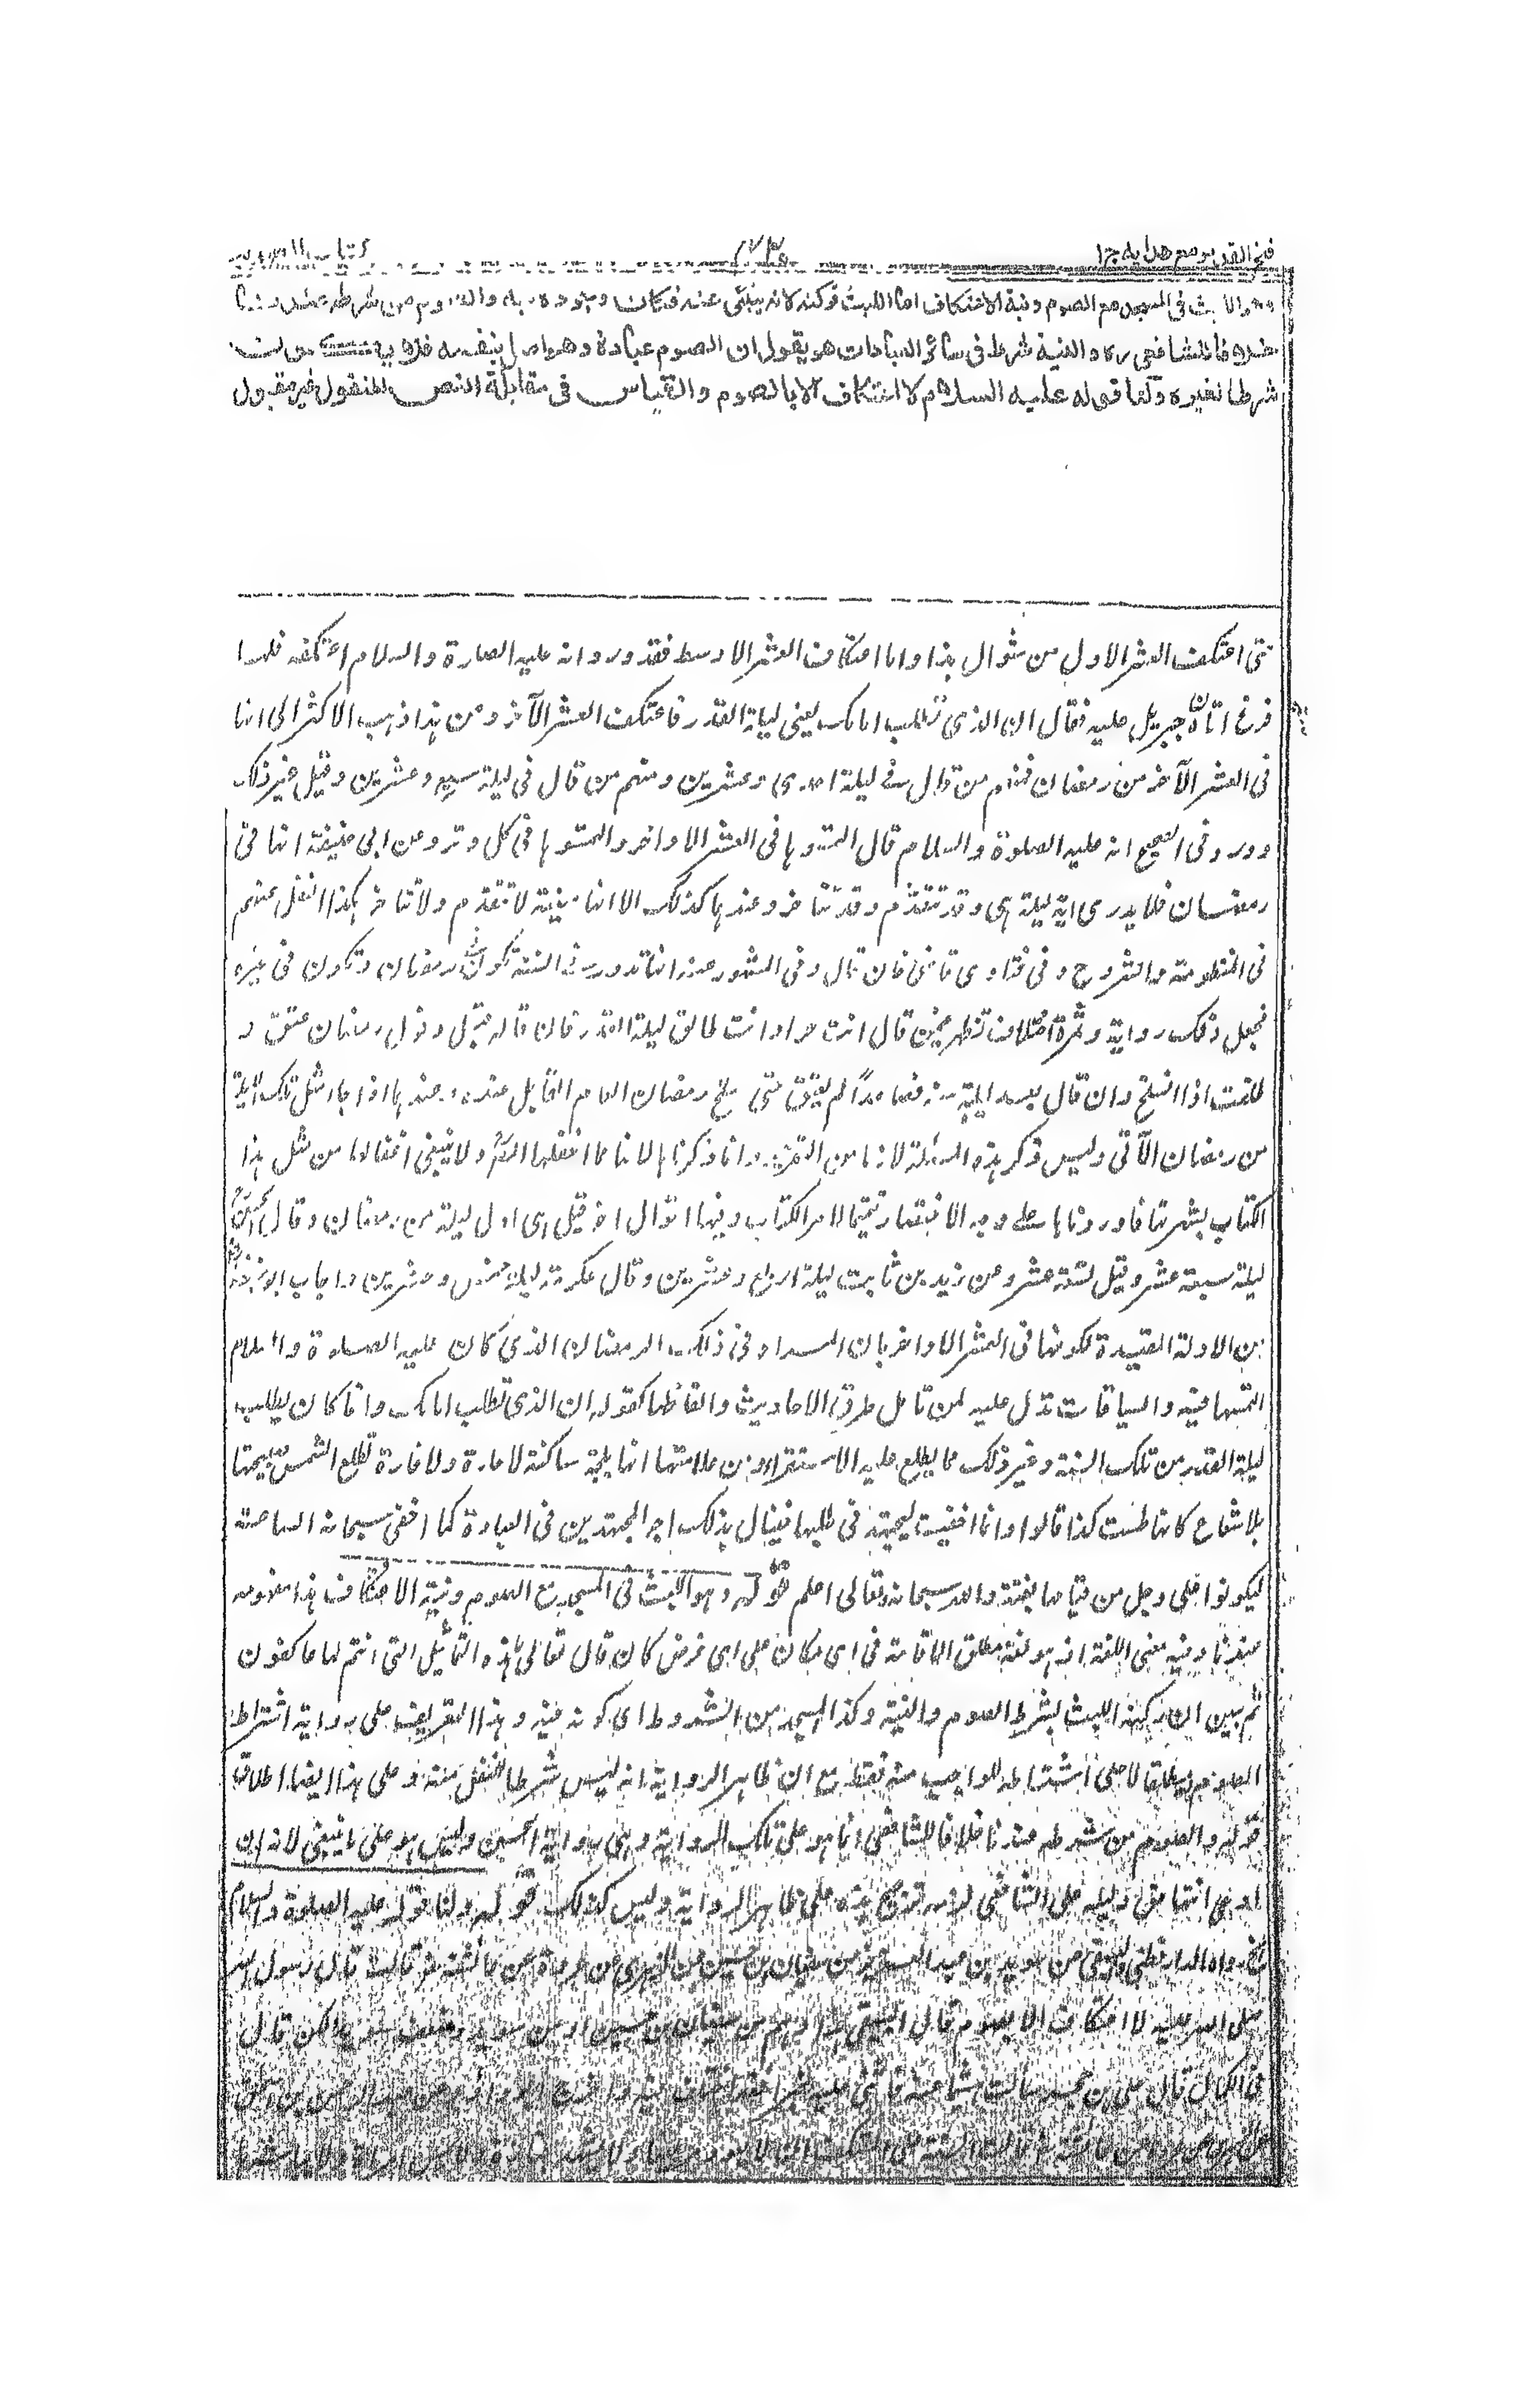 فتح القدير مع هدايه جرا
كتاب الصوم
وهو اللبث في المسجد مع الصوم ونية الاعتكاف اما اللبث فركنه لانه ينبئ عنه فكان وجوده به والصوم من شرطه عندنا
خلافا للشافعي ره والنية شرط في سائر العبادات هو يقول ان الصوم عبادة وهو اصل بنفسه فلا يكون
شرطا لغيره ولنا قوله عليه السلام لا اعتكاف الا بالصوم والقياس في مقابلة النص المنقول غير مقبول
حتى اعتكف العشر الاول من شوال هذا واما اعتكاف العشر الاوسط فقد ورد انه عليه الصلوة والسلام اعتكفه فلما
فرغ اتاه جبريل عليه فقال ان الذى تطلب امامك يعنى ليلة القدر فاعتكف العشر الآخر ومن هذا ذهب الاكثر الى انها
فى العشر الآخر من رمضان فمنهم من قال فى ليلة احدى وعشرين ومنهم من قال فى ليلة سبع وعشرين وقيل غير ذلك
وورد فى الصحيح انه عليه الصلوة والسلام قال التمسوها فى العشر الاواخر والتمسوها فى كل وتر وعن ابى حنيفة انها فى
رمضان فلا يدرى اية ليلة هى وقد تتقدم وقد تتأخر وعندهما كذلك الا انها معينة لا تتقدم ولا تتاخر هكذا النقل عنهم
فى المنظومة والشروح وفى فتاوى قاضى خان قال وفى المشهور عنه انها تدور فى السنة تكون فى رمضان وتكون فى غيره
فجعل ذلك رواية وثمرة الاختلاف تظهر فيمن قال انت حر او انت طالق ليلة القدر فان قاله قبل دخول رمضان عتق و
طلقت اذا انسلخ وان قال بعد ليلة منه فصاعدا لم يعتق حتى ينسلخ رمضان العام القابل عنده وعندهما اذا جاء مثل تلك الليلة
من رمضان الآتى وليس ذكر هذه المسألة لازما من التقرير وانما ذكرناها لانها مما اغفلها المص ولا ينبغى اغفالها من مثل هذا
الكتاب لشهرتها فاوردناها على وجه الاختصار تتميما لامر الكتاب وفيها اقوال اخر قيل هى اول ليلة من رمضان وقال الحسن
ليلة سبعة عشر وقيل تسعة عشر وعن زيد بن ثابت ليلة اربع وعشرين وقال عكرمة ليلة خمس وعشرين واجاب ابو حنيفة
عن الادلة المفيدة لكونها فى العشر الاواخر بان المراد فى ذلك الرمضان الذى كان عليه الصلوة والسلام
التمسها فيه والسياقات تدل عليه لمن تامل طرق الاحاديث والفاظها كقوله ان الذى تطلب امامك وانما كان يطلب
ليلة القدر من تلك السنة وغير ذلك مما يطلع عليه الاستقراء ومن علامتها انها بلجة ساكنة لا حارة ولا قارة تطلع الشمس صبيحتها
بلا شعاع كانها طست كذا قالوا وانما اخفيت ليجتهد فى طلبها فينال بذلك اجر المجتهدين فى العبادة كما اخفى سبحانه الساعة
ليكونوا على وجل من قيامها بغتة والله سبحانه وتعالى اعلم قوله وهو اللبث فى المسجد مع الصوم ونية الاعتكاف هذا مفهومه
عندنا وفيه معنى اللغة اذ هو لغة مطلق الاقامة فى اى مكان على اى غرض كان قال تعالى ما هذه التماثيل التى انتم لها عاكفون
ثم بين ان ركنه اللبث بشرط الصوم والنية وكذا المسجد من الشروط اى كونه فيه وهذا التعريف على رواية اشتراط
الصوم له مطلقا لا على اشتراطه للواجب منه فقط مع ان ظاهر الرواية انه ليس شرطا للنفل منه وعلى هذا ايضا اطلاق
قوله والصوم من شرطه عندنا خلافا للشافعى انما هو على تلك الرواية وهى رواية الحسن وليس هو على ما ينبغى لانه ان
ادعى انتهاض دليله على الشافعى لزمه ترجيح هذه على ظاهر الرواية وليس كذلك قوله ولنا قوله عليه الصلوة والسلام
الخ رواه الدارقطنى والبيهقى عن سويد بن عبد العزيز عن سفيان بن حسين عن الزهرى عن عروة عن عائشة رض قالت قال رسول الله
صلى الله عليه لا اعتكاف الا بصوم قال البيهقى هذا وهم من سفيان بن حسين او من سويد وضعف سويد لكن قال
فى الكمال قال على بن حجر سالت هشيما عنه فاثنى عليه خيرا